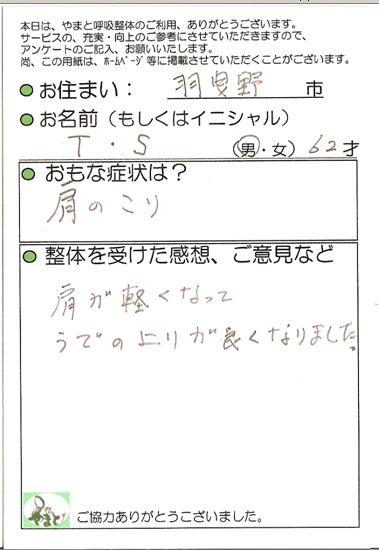 本日は、やまと呼吸整体のご利用、ありがとうございます。
サービスの、充実・向上のご参考にさせていただきますので、
アンケートのご記入、お願いいたします。
尚、この用紙は、ﾎｰﾑﾍﾟｰｼﾞ等に掲載させていただくことがございます。
●お住まい： 羽曳野 市
●お名前（もしくはイニシャル）
T・S （男・女）62才
●おもな症状は？
肩のこり
●整体を受けた感想、ご意見など
肩が軽くなって
うでの上りが良くなりました。
やまと
ご協力ありがとうこざいました。